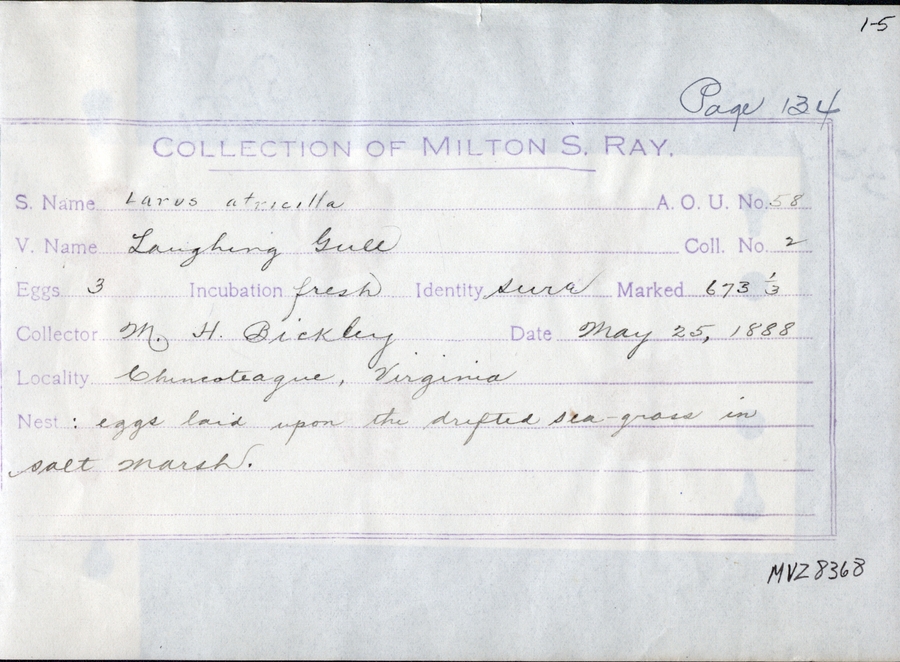 1-5
Page 134
COLLECTION OF MILTON S. RAY.
S. Name Larus atricilla A. O. U. No. 58
V. Name Laughing Gull Coll. No. 2
Eggs 3 Incubation fresh Identity sure Marked 673 1/3
Collector M. H. Bickley Date May 25, 1888
Locality Chincoteague, Virginia
Nest : eggs laid upon the drifted sea-grass in
salt marsh.
MVZ 8368